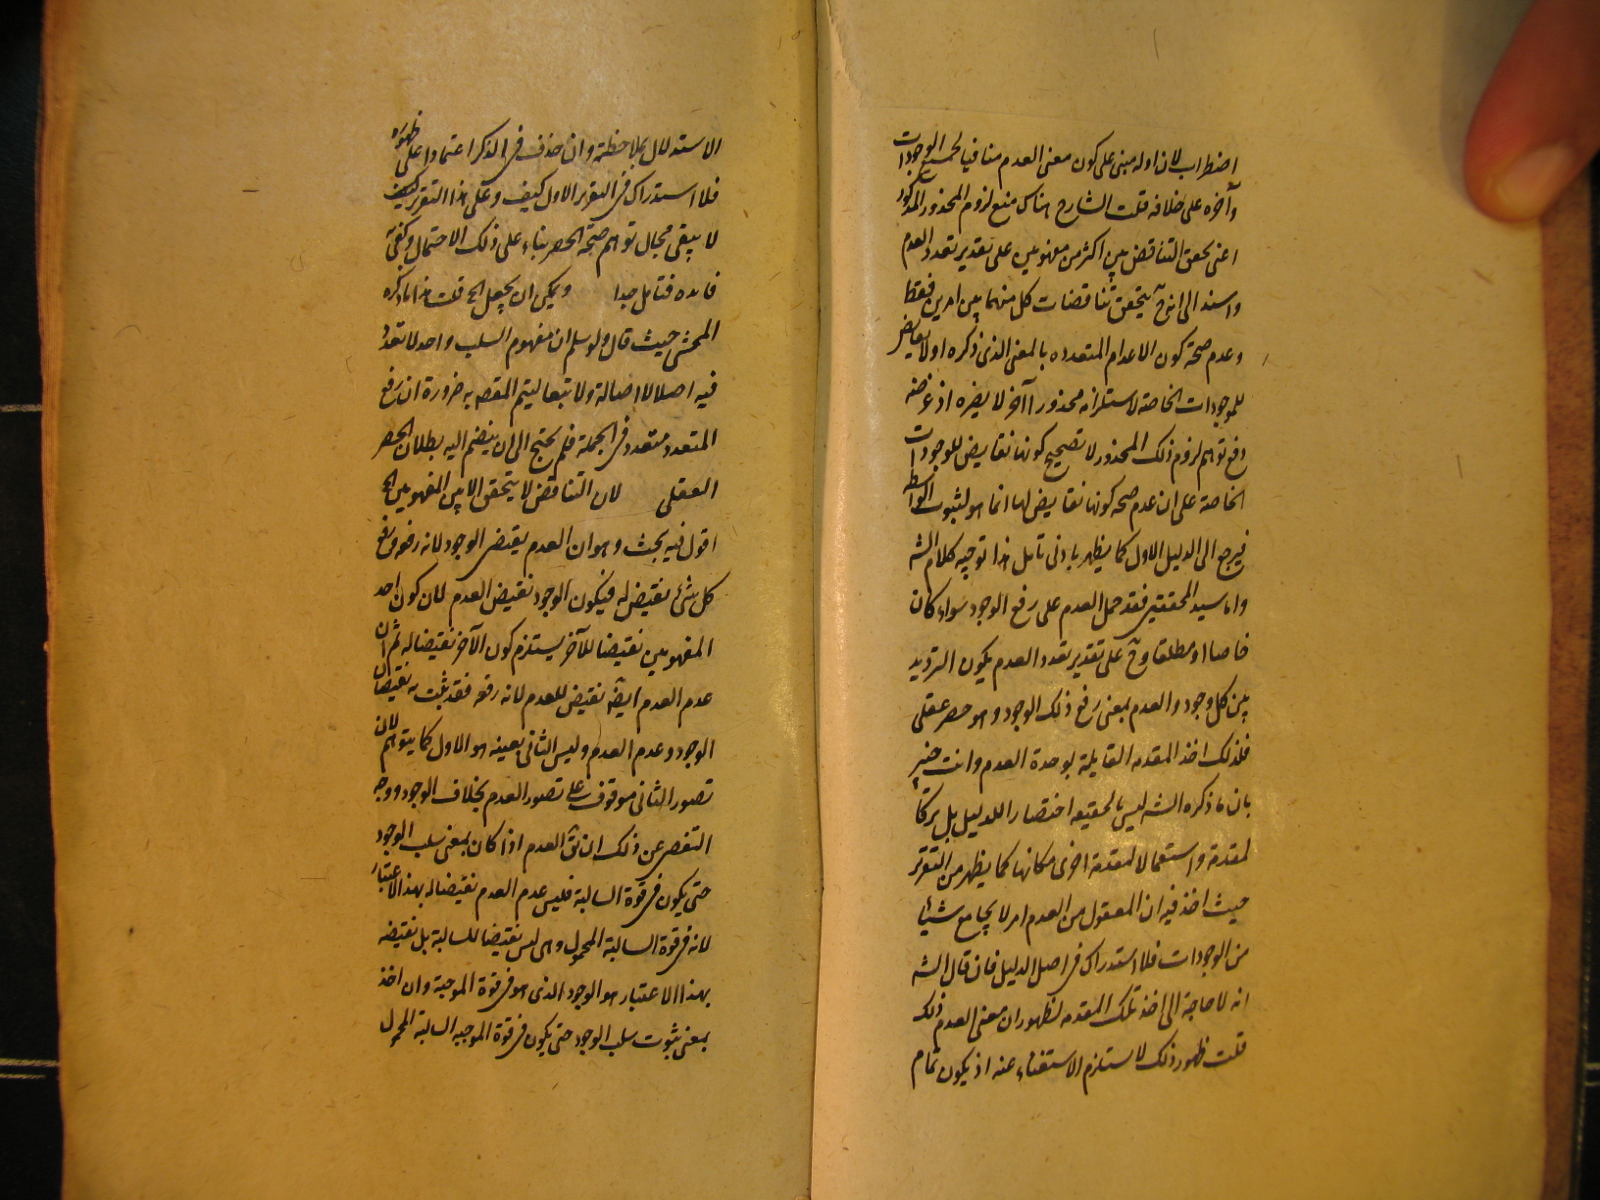 اضطراب لان اوله مبنى على كون معنى العدم منافيا لجميع الوجودات
وآخره على خلافه قلت الشارح هناك منع لزوم المحذور المذكور
اعنى تحقق التناقض بين اكثر من مفهومين على تقدير تعدد العدم
واسند الى انه ح يتحقق تناقضات كل منهما بين امرين فقط
وعدم صحة كون الاعدام المتعدده بالمعنى الذى ذكره اولا نقايض
للموجودات الخاصة لاستلزامه محذورا آخر لا يضره اذ غرضه
دفع توهم لزوم ذلك المحذور لا تصحيح كونها نقايض للوجودات
الخاصة على ان عدم صحه كونها نقايض لها انما هو لثبوت الواسطه
فيرجع الى الدليل الاول كما يظهر بادنى تامل هذا توجيه كلام الشه
واما سيد المحققين فقد حمل العدم على رفع الوجود سواء كان
خاصا او مطلقا وح على تقدير تعدد العدم يكون الترديد
بين كل وجود والعدم بمعنى رفع ذلك الوجود وهو حصر عقلى
فلذلك اخذ المقدمه القايلة بوحدة العدم وانت خبير
بان ما ذكره الشه ليس بالحقيقه اختصارا للدليل بل تركا
لمقدمة واستعمالا لمقدمة اخرى مكانها كما يظهر من التقرير
حيث اخذ فيه ان المعقول من العدم امر لا يجامع شيئا
من الوجودات فلا استدراك فى اصل الدليل فان قال الشه
انه لا حاجة الى اخذ تلك المقدمه لظهور ان معنى العدم ذلك
قلت ظهور ذلك لا يستلزم الاستغناء عنه اذ يكون تمام
الاستدلال بملاحظته وان حذف فى الذكر اعتمادا على ظهوره
فلا استدراك فى التقرير الاول كيف وعلى هذا التقرير
لا يبقى مجال توهم صحة الحصر بناء على ذلك الاحتمال وكفى به
فايده فتامل جدا ويمكن ان يجعل الخ قلت هذا ما ذكره
المحشى حيث قال ولو سلم ان مفهوم السلب واحد لا تعدد
فيه اصلا لا اصالة ولا تبعا ليتم المقصه به ضرورة ان رفع
المتعدد متعدد فى الجملة فلم يحتج الى ان ينضم اليه بطلان الحصر
العقلى لان التناقض لا يتحقق الا بين المفهومين الخ
اقول فيه بحث وهو ان العدم يقتضى الوجود لانه رفعه ورفع
كل شئ نقيض له فيكون الوجود نقيض العدم لان كون احد
المفهومين نقيضا للآخر يستلزم كون الآخر نقيضا له ثم ان
عدم العدم ايضه نقيض للعدم لانه رفعه فقد ثبت به نقيضان
الوجود وعدم العدم وليس الثانى بعينه هو الاول كما يتوهم لان
تصور الثانى موقوف على تصور العدم بخلاف الوجود ووجه
التفصى عن ذلك ان يق العدم اذا كان بمعنى سلب الوجود
حتى يكون فى قوة السالبة فليس عدم العدم نقيضا له بهذا الاعتبار
لانه فى قوة السالبة المحمول وهى ليس نقيضا للسالبة بل نقيضه
بهذا الاعتبار هو الوجود الذى هو فى قوة الموجبة وان اخذ
بمعنى ثبوت سلب الوجود حتى يكون فى قوة الموجبه السالبة المحمول